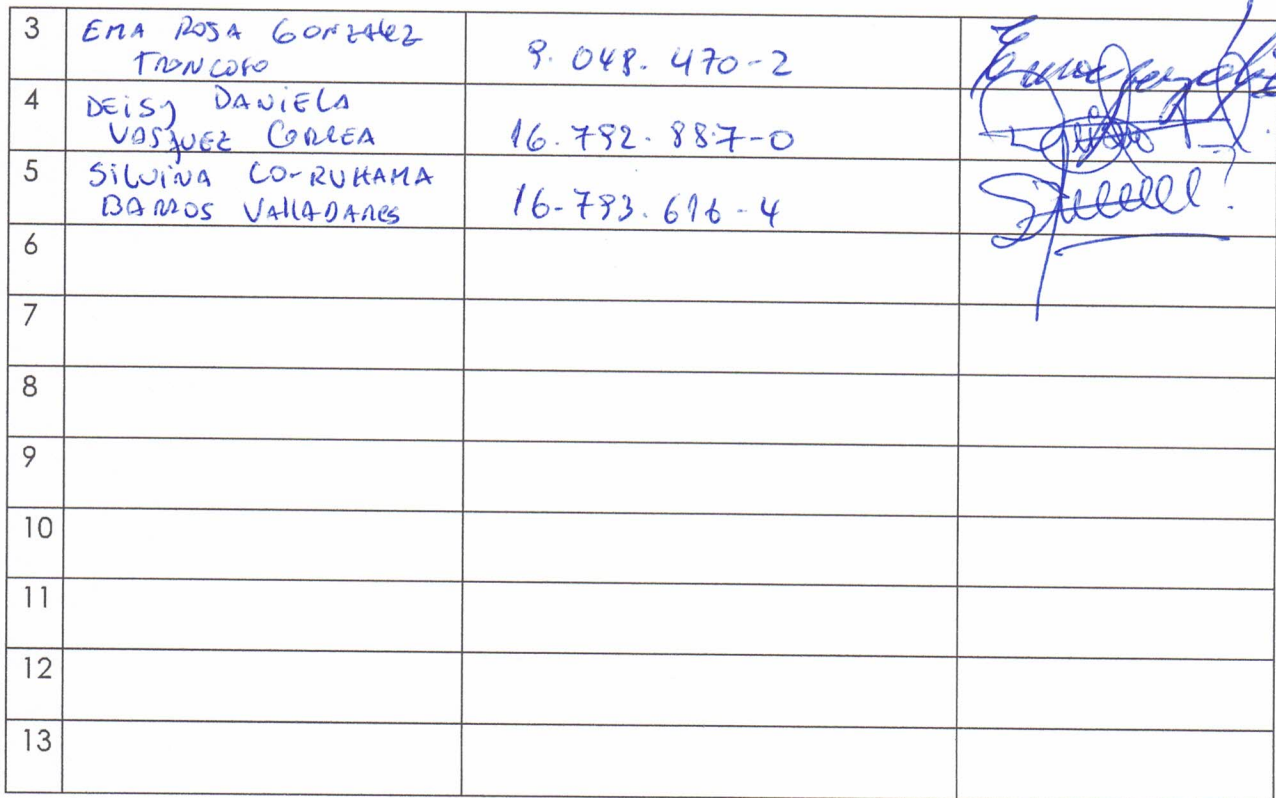 3 EMA ROSA GONZALEZ
TRONCOSO 9.048.470-2
4 DEISY DANIELA
VASQUEZ CORREA 16.792.887-0
5 SILVINA LO-RUHAMA
BARROS VALLADARES 16-793.616-4
6
7
8
9
10
11
12
13